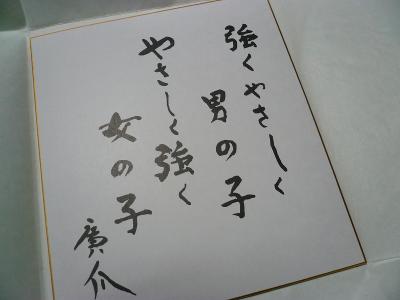 強くやさしく
男の子
やさしく強く
女の子
廣爪